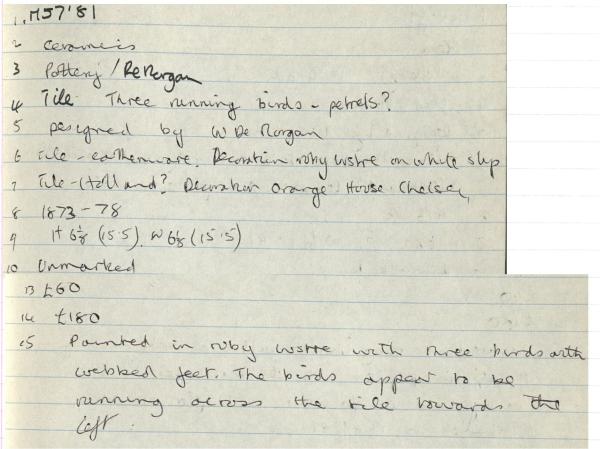 1. M57'81
2 Ceramics
3 Pottery / De Morgan
4 Tile Three running birds - petrels?
5 Designed by W De Morgan
6 Tile - earthenware. Decoration ruby lustre on white slip
7 Tile - Holland? Decoration Orange House Chelsea,
8 1873 - 78
9 H 6⅛ (15.5). W 6⅛ (15.5)
10 Unmarked
13 £60
14 £180
15 Painted in ruby lustre with three birds with
webbed feet. The birds appear to be
running across the tile towards the
left.